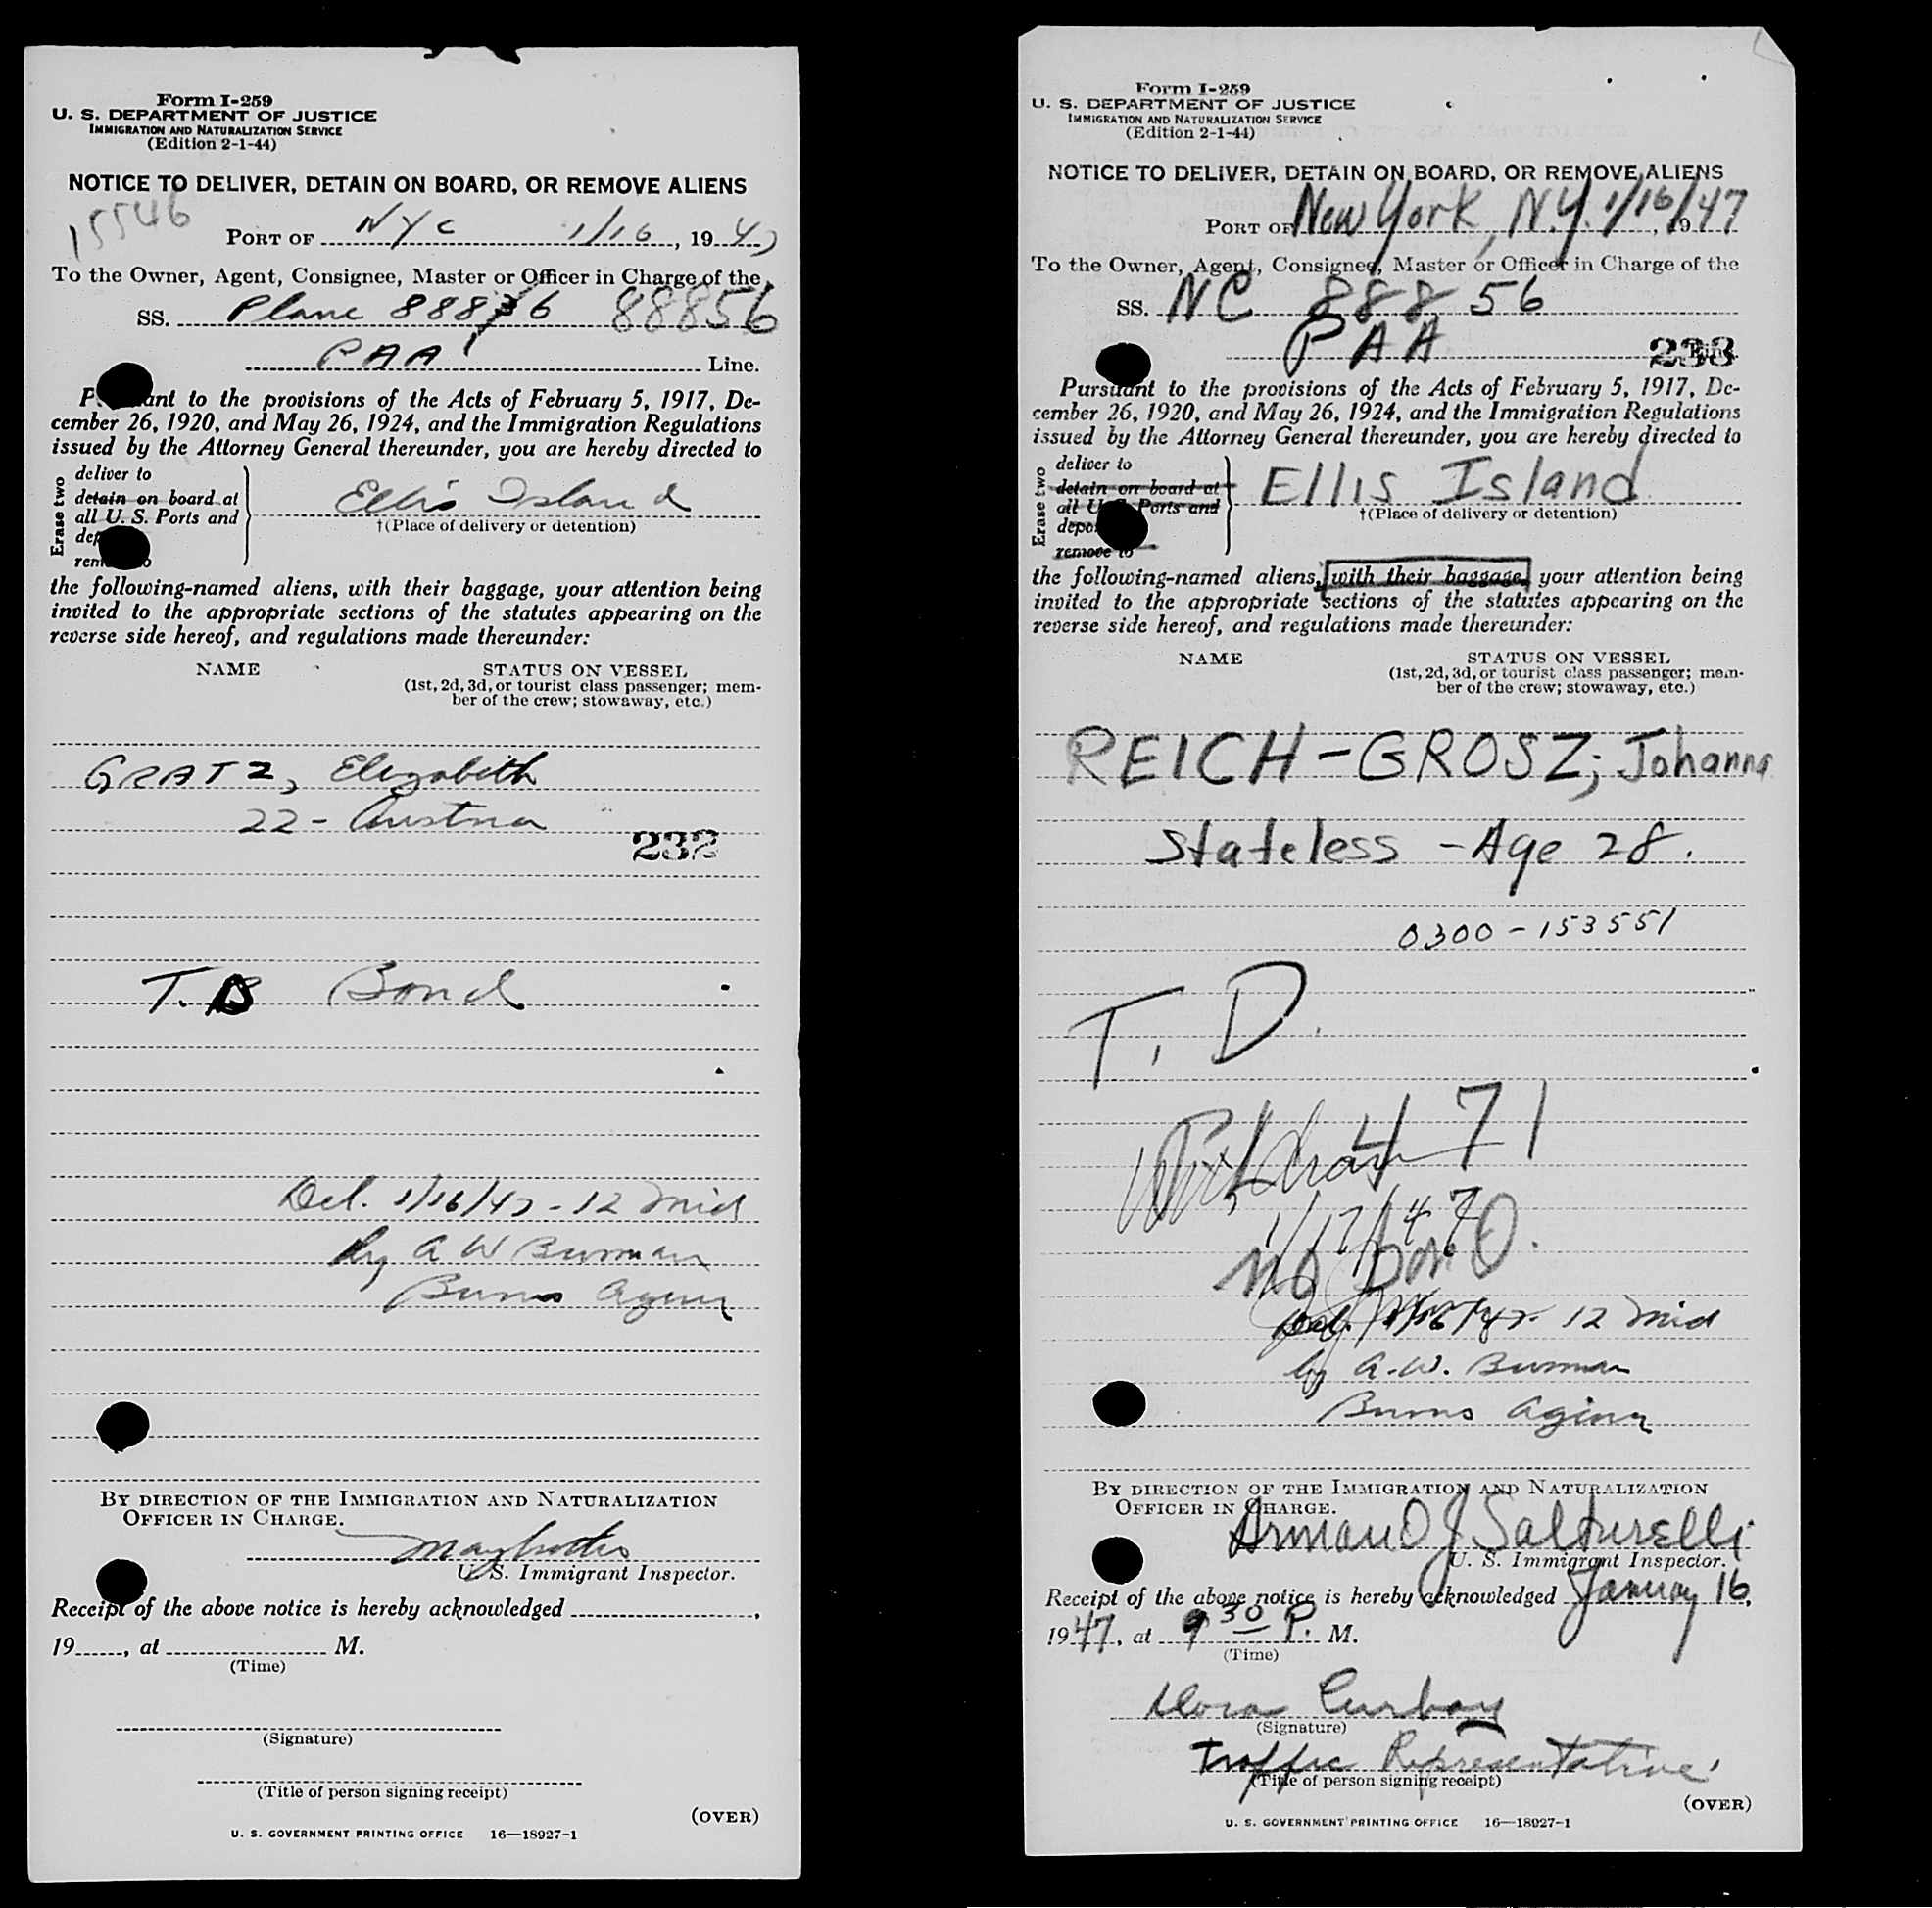 Form I-259
U. S. DEPARTMENT OF JUSTICE
IMMIGRATION AND NATURALIZATION SERVICE
(Edition 2-1-44)
NOTICE TO DELIVER, DETAIN ON BOARD, OR REMOVE ALIENS
15546
PORT OF NYC 1/16, 1947
To the Owner, Agent, Consignee, Master or Officer in Charge of the
SS. Plane 88836 88856
PAA Line.
to the provisions of the Acts of February 5, 1917, De-
cember 26, 1920, and May 26, 1924, and the Immigration Regulations
issued by the Attorney General thereunder, you are hereby directed to
Erase two
deliver to
detain on board at
all U. S. Ports and
Ellis Island
†(Place of delivery or detention)
the following-named aliens, with their baggage, your attention being
invited to the appropriate sections of the statutes appearing on the
reverse side hereof, and regulations made thereunder:
NAME STATUS ON VESSEL
(1st, 2d, 3d, or tourist class passenger; mem-
ber of the crew; stowaway, etc.)
GRATZ, Elizabeth
22 - Austria
232
T. D Bond
Del. 1/16/47 - 12 Mid
by A W Burman
Burns Agency
BY DIRECTION OF THE IMMIGRATION AND NATURALIZATION
OFFICER IN CHARGE.
U. S. Immigrant Inspector.
Receipt of the above notice is hereby acknowledged ,
19 , at M.
(Time)
(Signature)
(Title of person signing receipt)
(OVER)
U. S. GOVERNMENT PRINTING OFFICE 16—18927-1
Form I-259
U. S. DEPARTMENT OF JUSTICE
IMMIGRATION AND NATURALIZATION SERVICE
(Edition 2-1-44)
NOTICE TO DELIVER, DETAIN ON BOARD, OR REMOVE ALIENS
PORT OF New York, N.Y. 1/16/47
To the Owner, Agent, Consignee, Master or Officer in Charge of the
SS. NC 88856
PAA 233
Pursuant to the provisions of the Acts of February 5, 1917, De-
cember 26, 1920, and May 26, 1924, and the Immigration Regulations
issued by the Attorney General thereunder, you are hereby directed to
Erase two
deliver to
detain on board at
all U. S. Ports and
remove to
Ellis Island
†(Place of delivery or detention)
the following-named aliens, with their baggage, your attention being
invited to the appropriate sections of the statutes appearing on the
reverse side hereof, and regulations made thereunder:
NAME STATUS ON VESSEL
(1st, 2d, 3d, or tourist class passenger; mem-
ber of the crew; stowaway, etc.)
REICH-GROSZ; Johanna
Stateless - Age 28.
0300-153551
T. D.
471
Withdrawn
1/17/47
No Bond.
Del. 1/16/47 - 12 Mid
by A. W. Burman
Burns Agency
BY DIRECTION OF THE IMMIGRATION AND NATURALIZATION
OFFICER IN CHARGE.
Armand J Salturelli
U. S. Immigrant Inspector.
Receipt of the above notice is hereby acknowledged January 16,
1947, at 9 30 P. M.
(Time)
(Signature)
Traffic Representative
(Title of person signing receipt)
(OVER)
U. S. GOVERNMENT PRINTING OFFICE 16—18927-1